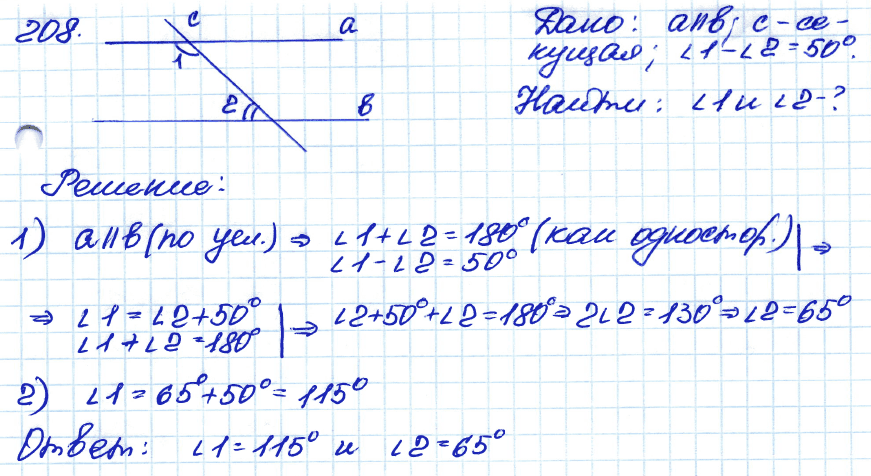 208.
c
a
1
2
b
Дано: a∥b; c - се-
кущая; ∠1-∠2=50°.
Найти: ∠1 и ∠2-?
Решение:
1) a∥b (по усл.) ⇒ ∠1+∠2=180° (как одностор.) | ⇒
∠1-∠2=50°
⇒ ∠1=∠2+50° | ⇒ ∠2+50°+∠2=180° ⇒ 2∠2=130° ⇒ ∠2=65°
∠1+∠2=180°
2) ∠1=65°+50°=115°
Ответ: ∠1=115° и ∠2=65°